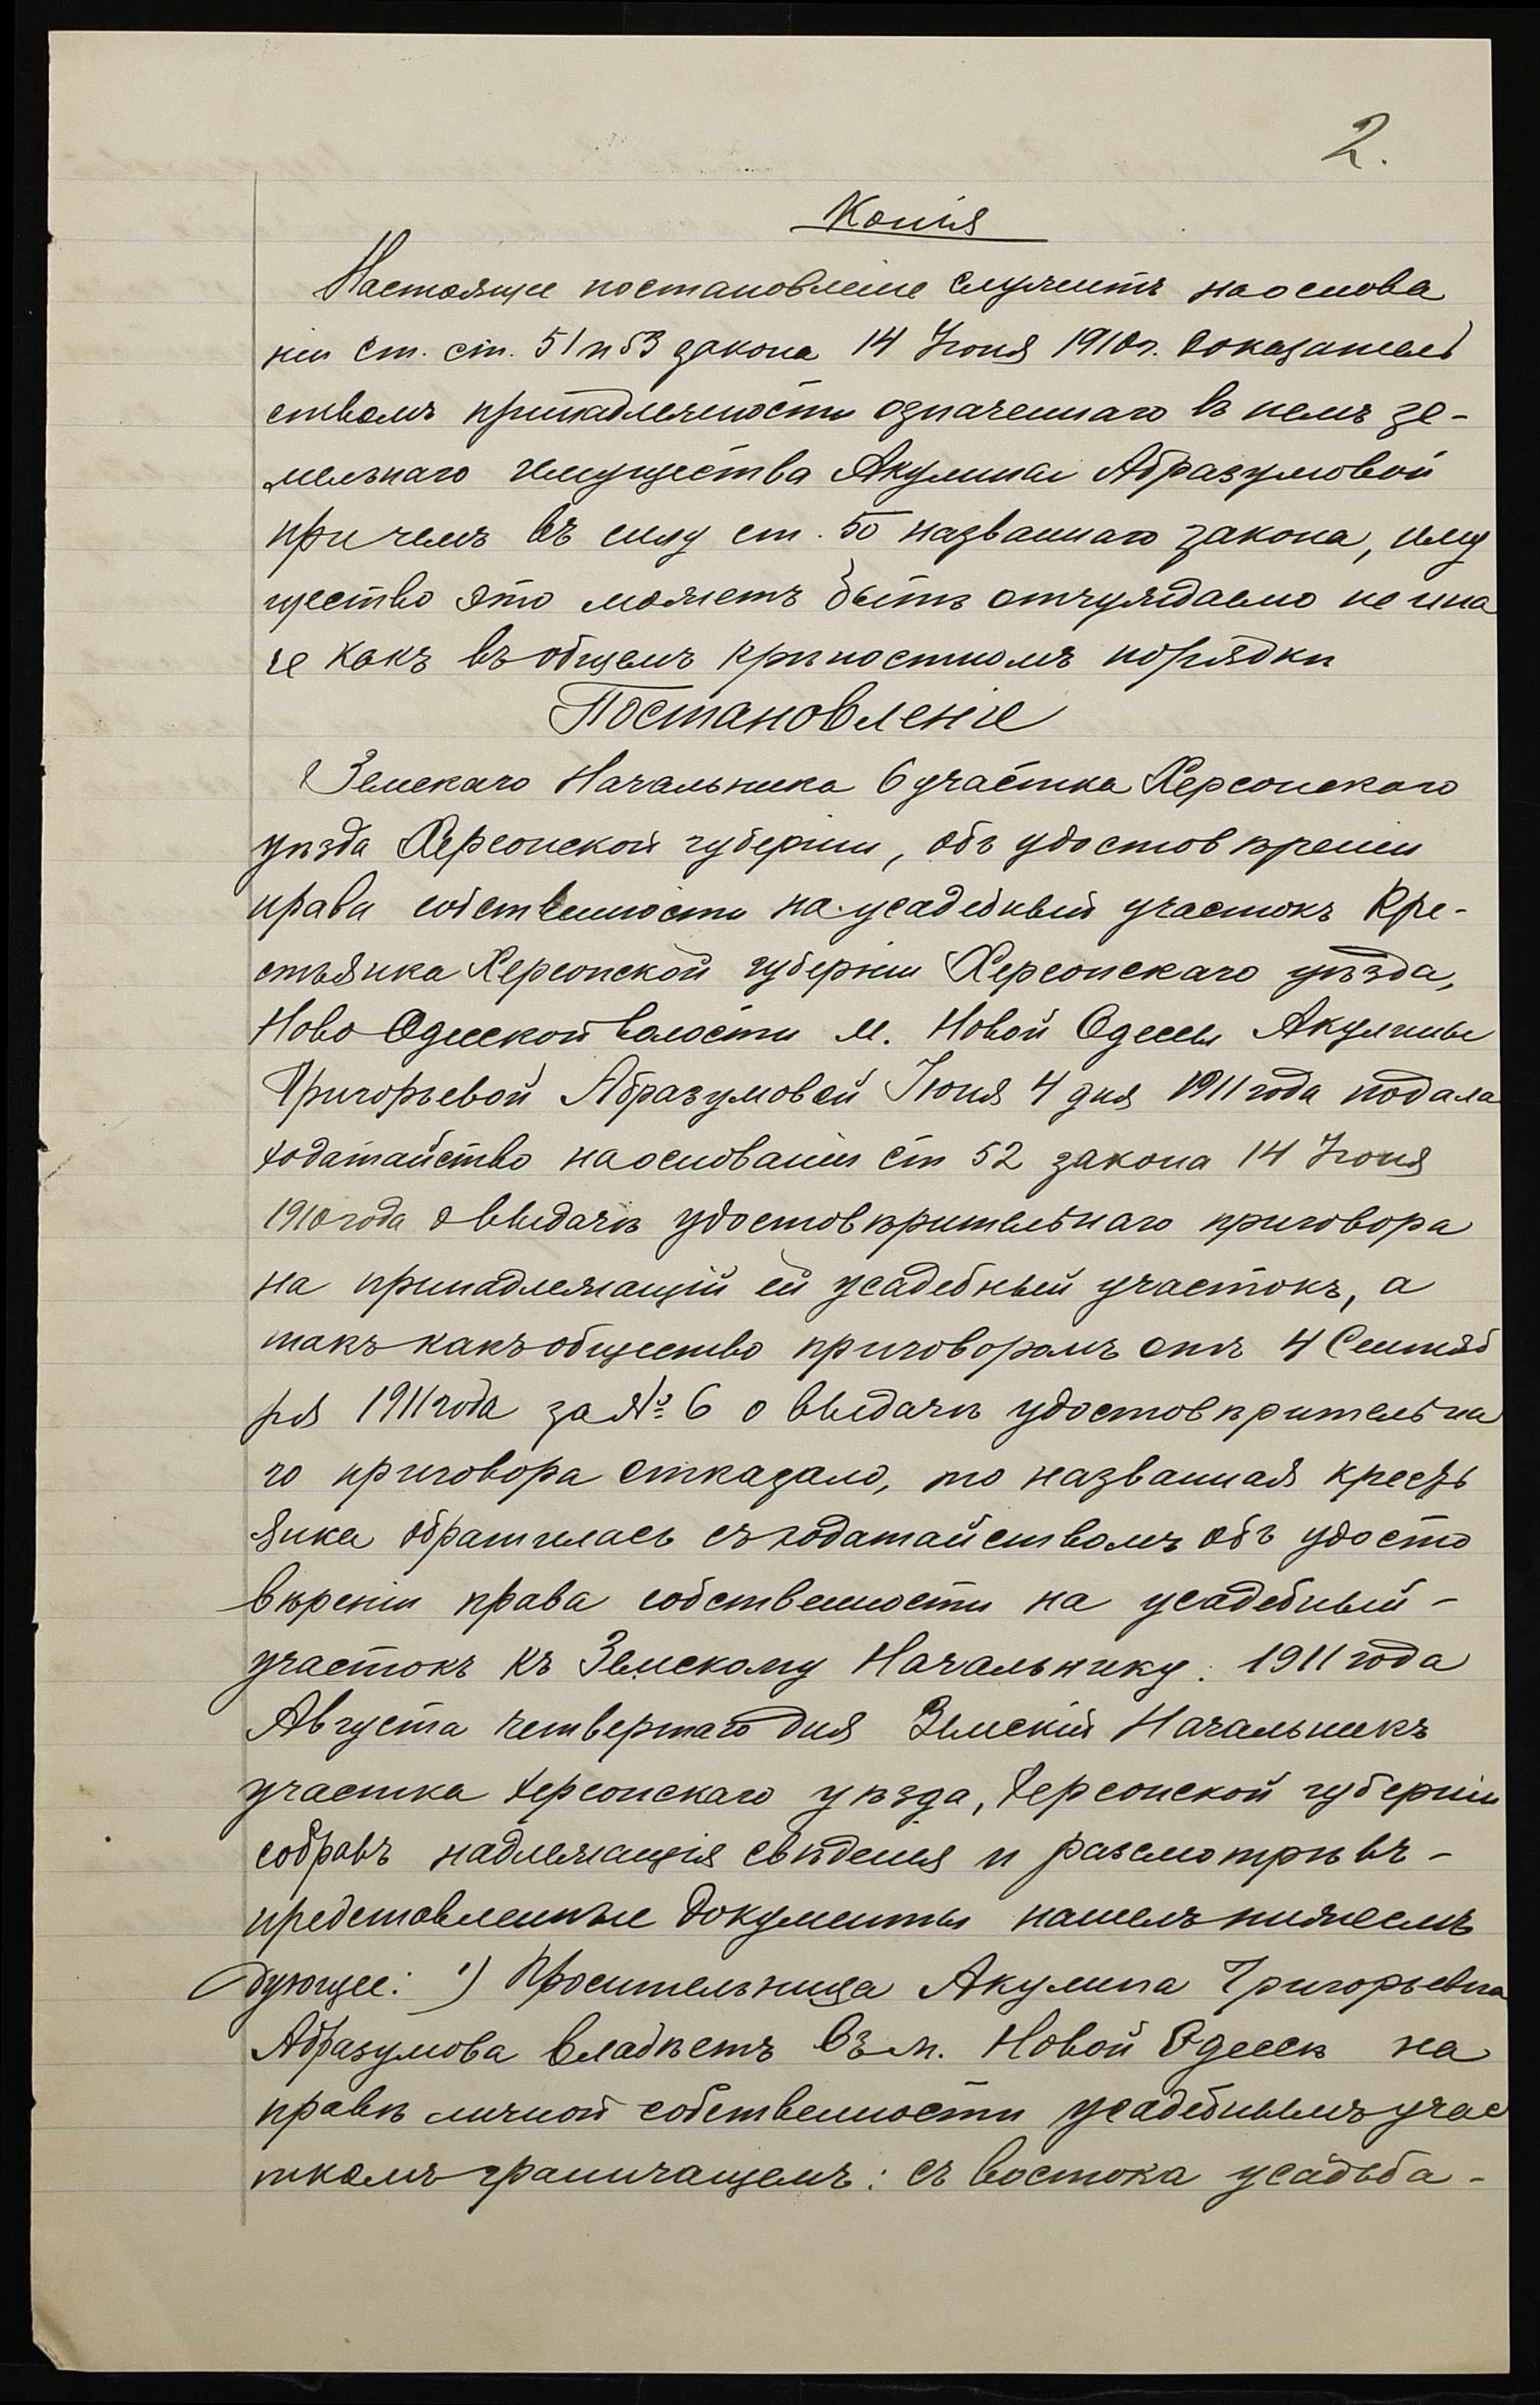 2.
Копія
Настоящее постановленіе служитъ на основа
ніи ст. ст. 51 и 53 закона 14 Іюня 1910 г. доказатель
ствомъ принадлежности означеннаго въ немъ зе-
мельнаго имущества Акулины Абразумовой
при чемъ въ силу ст. 50 названнаго закона, иму
щество это можетъ быть отчуждаемо не ина
че какъ въ общемъ крѣпостномъ порядкѣ
Постановленіе
Земскаго Начальника 6 участка Херсонскаго
уѣзда Херсонской губерніи, объ удостовѣреніи
права собственности на усадебный участокъ Кре-
стьянка Херсонской губерніи Херсонскаго уѣзда,
Ново Одесской волости м. Новой Одессы Акулины
Григорьевой Абразумовой Іюня 4 дня 1911 года подала
ходатайство на основаніи ст 52 закона 14 Іюня
1910 года о выдачѣ удостовѣрительнаго приговора
на принадлежащій ей усадебный участокъ, а
такъ какъ общество приговоромъ отъ 4 Сентяб
ря 1911 года за № 6 о выдачѣ удостовѣрительна
го приговора отказало, то названная кресть
янка обратилась съ ходатайствомъ объ удосто
вѣреніи права собственности на усадебный -
участокъ къ Земскому Начальнику. 1911 года
Августа четвертаго дня Земскій Начальникъ
участка Херсонскаго уѣзда, Херсонской губерніи
собравъ надлежащія свѣденія и разсмотрѣвъ -
представленные документы нашелъ нижеслѣ
дующее: 1) Просительница Акулина Григорьевна
Абразумова владѣетъ въ м. Новой Одессѣ на
правѣ личной собственности усадебнымъ учас
ткомъ граничащемъ: съ востока усадьба -